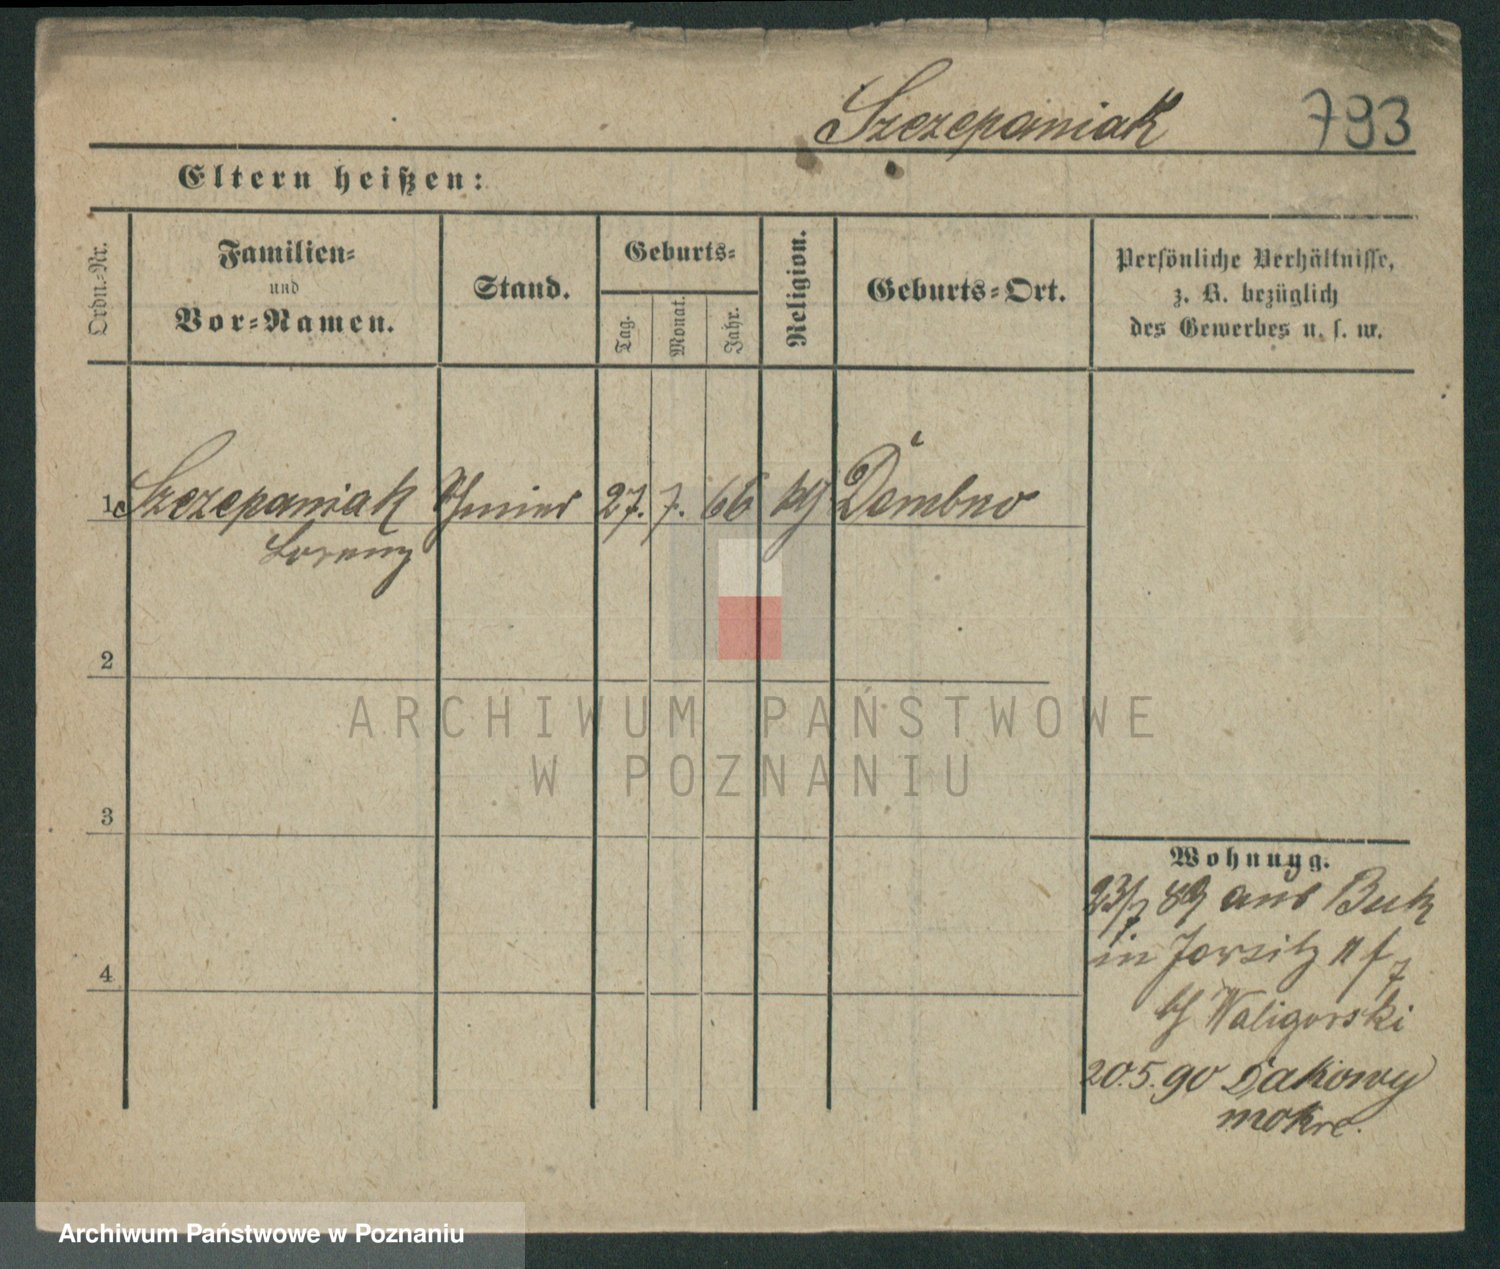 Szczepaniak 793
Eltern heißen:
Ordn.-Nr.
Familien-
und
Vor-Namen.
Stand.
Geburts-
Tag.
Monat.
Jahr.
Religion.
Geburts-Ort.
Persönliche Verhältnisse,
z. B. bezüglich
des Gewerbes u. s. w.
1 Szczepaniak 27. 7. 66 Dembno
Lorenz
2
3
4
Wohnung.
23/7 89 aus Buk
in Jersitz
Waligorski
20.5.90 Dakowy
mokre.
ARCHIWUM PAŃSTWOWE
W POZNANIU
Archiwum Państwowe w Poznaniu